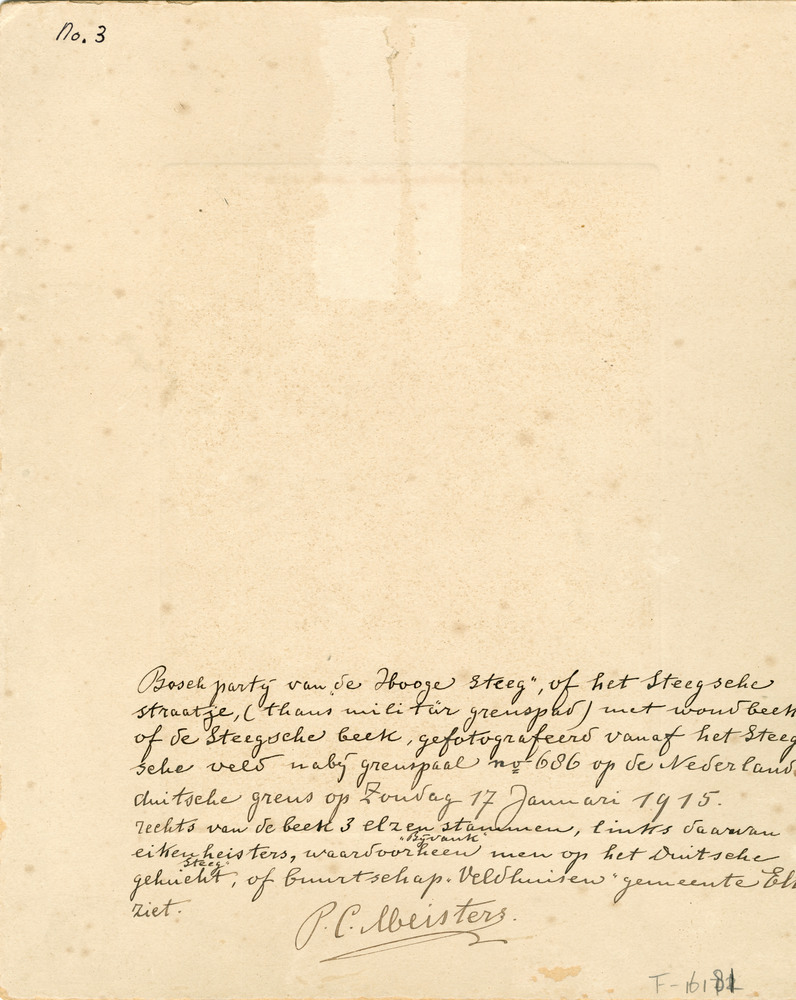 No. 3
Bosch partij van „de Hooge Steeg", of het Steegsche
straatje, (thans militär grenspad) met woudbeek
of de Steegsche beek, gefotografeerd vanaf het Steeg
sche veld nabij grenspaal no 686 op de Nederland
duitsche grens op Zondag 17 Januari 1915.
rechts van de beek 3 elzen stammen, links daarvan
"Bijvank"
eiken heisters, waardoorheen men op het Duitsche
"Steeg"
gehucht, of buurtschap "Veldhuisen" gemeente
ziet.
P. C. Meisters.